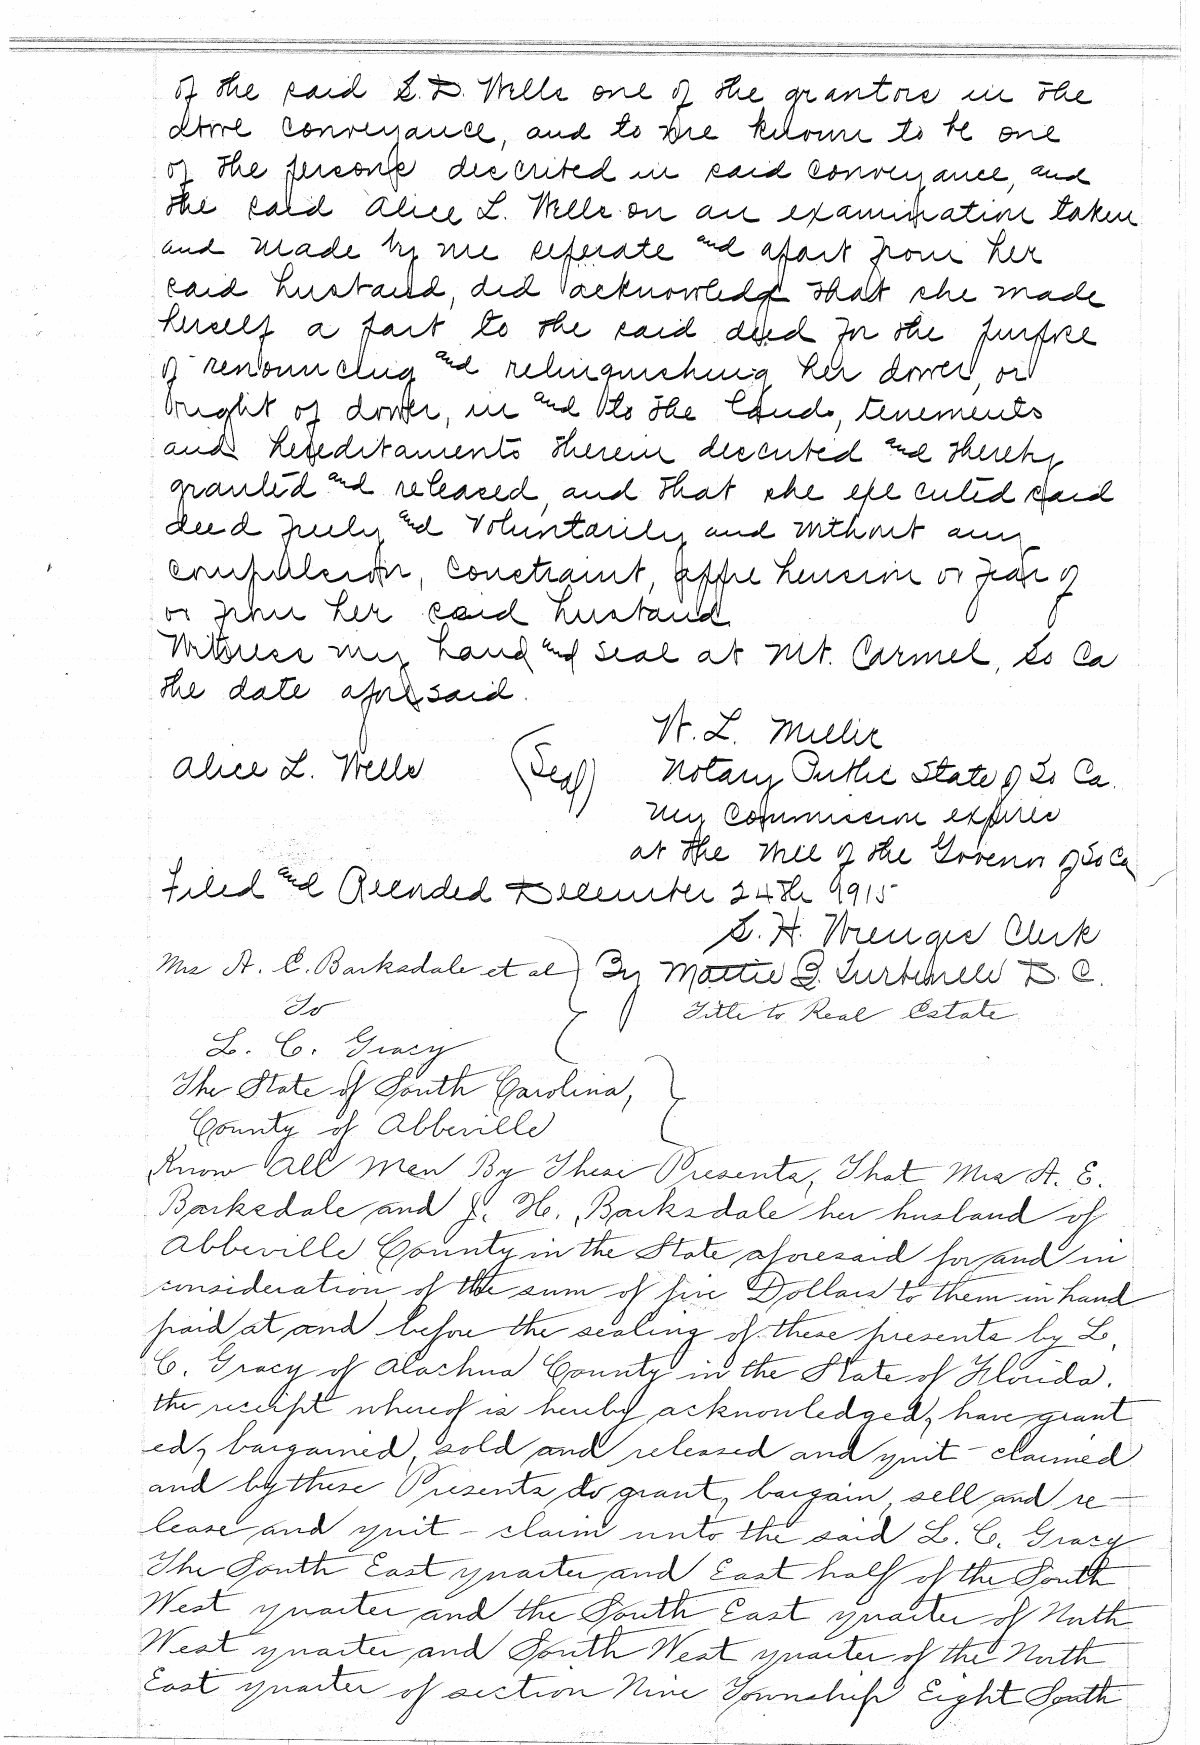 of the said S. D. Wells one of the grantors in the
above conveyance, and to me known to be one
of the persons described in said conveyance, and
the said Alice L. Wells on an examination taken
and made by me seperate and apart from her
said husband, did acknowledge that she made
herself a part to the said deed for the purpose
of renouncing and relinquishing her dower, or
right of dower, in and to the lands, tenements
and hereditaments therein described and thereby
granted and released, and that she executed said
deed freely and voluntarily and without any
compulsion, constraint, apprehension or fear of
or from her said husband.
Witness my hand and seal at Mt. Carmel, So Ca
the date aforesaid.
W. L. Miller
Alice L. Wells (Seal) Notary Public State of So Ca.
My Commission expires
at the will of the Govenor of So Ca
Filed and Recorded December 24th 1915
S. H. Wienges Clerk
Mrs A. E. Barksdale et al By Mattie D. C.
To Title to Real Estate
L. C. Gracy
The State of South Carolina,
County of Abbeville
Know All Men By These Presents, That Mrs A. E.
Barksdale and J. H. Barksdale her husband of
Abbeville County in the State aforesaid for and in
consideration of the sum of five Dollars to them in hand
paid at and before the sealing of these presents by L.
C. Gracy of Alachua County in the State of Florida.
the receipt whereof is hereby acknowledged, have grant
ed, bargained, sold and released and quit-claimed
and by these Presents do grant, bargain, sell and re-
lease and quit-claim unto the said L. C. Gracy
The South East quarter and East half of the South
West quarter and the South East quarter of North
West quarter and South West quarter of the North
East quarter of section Nine Township Eight South